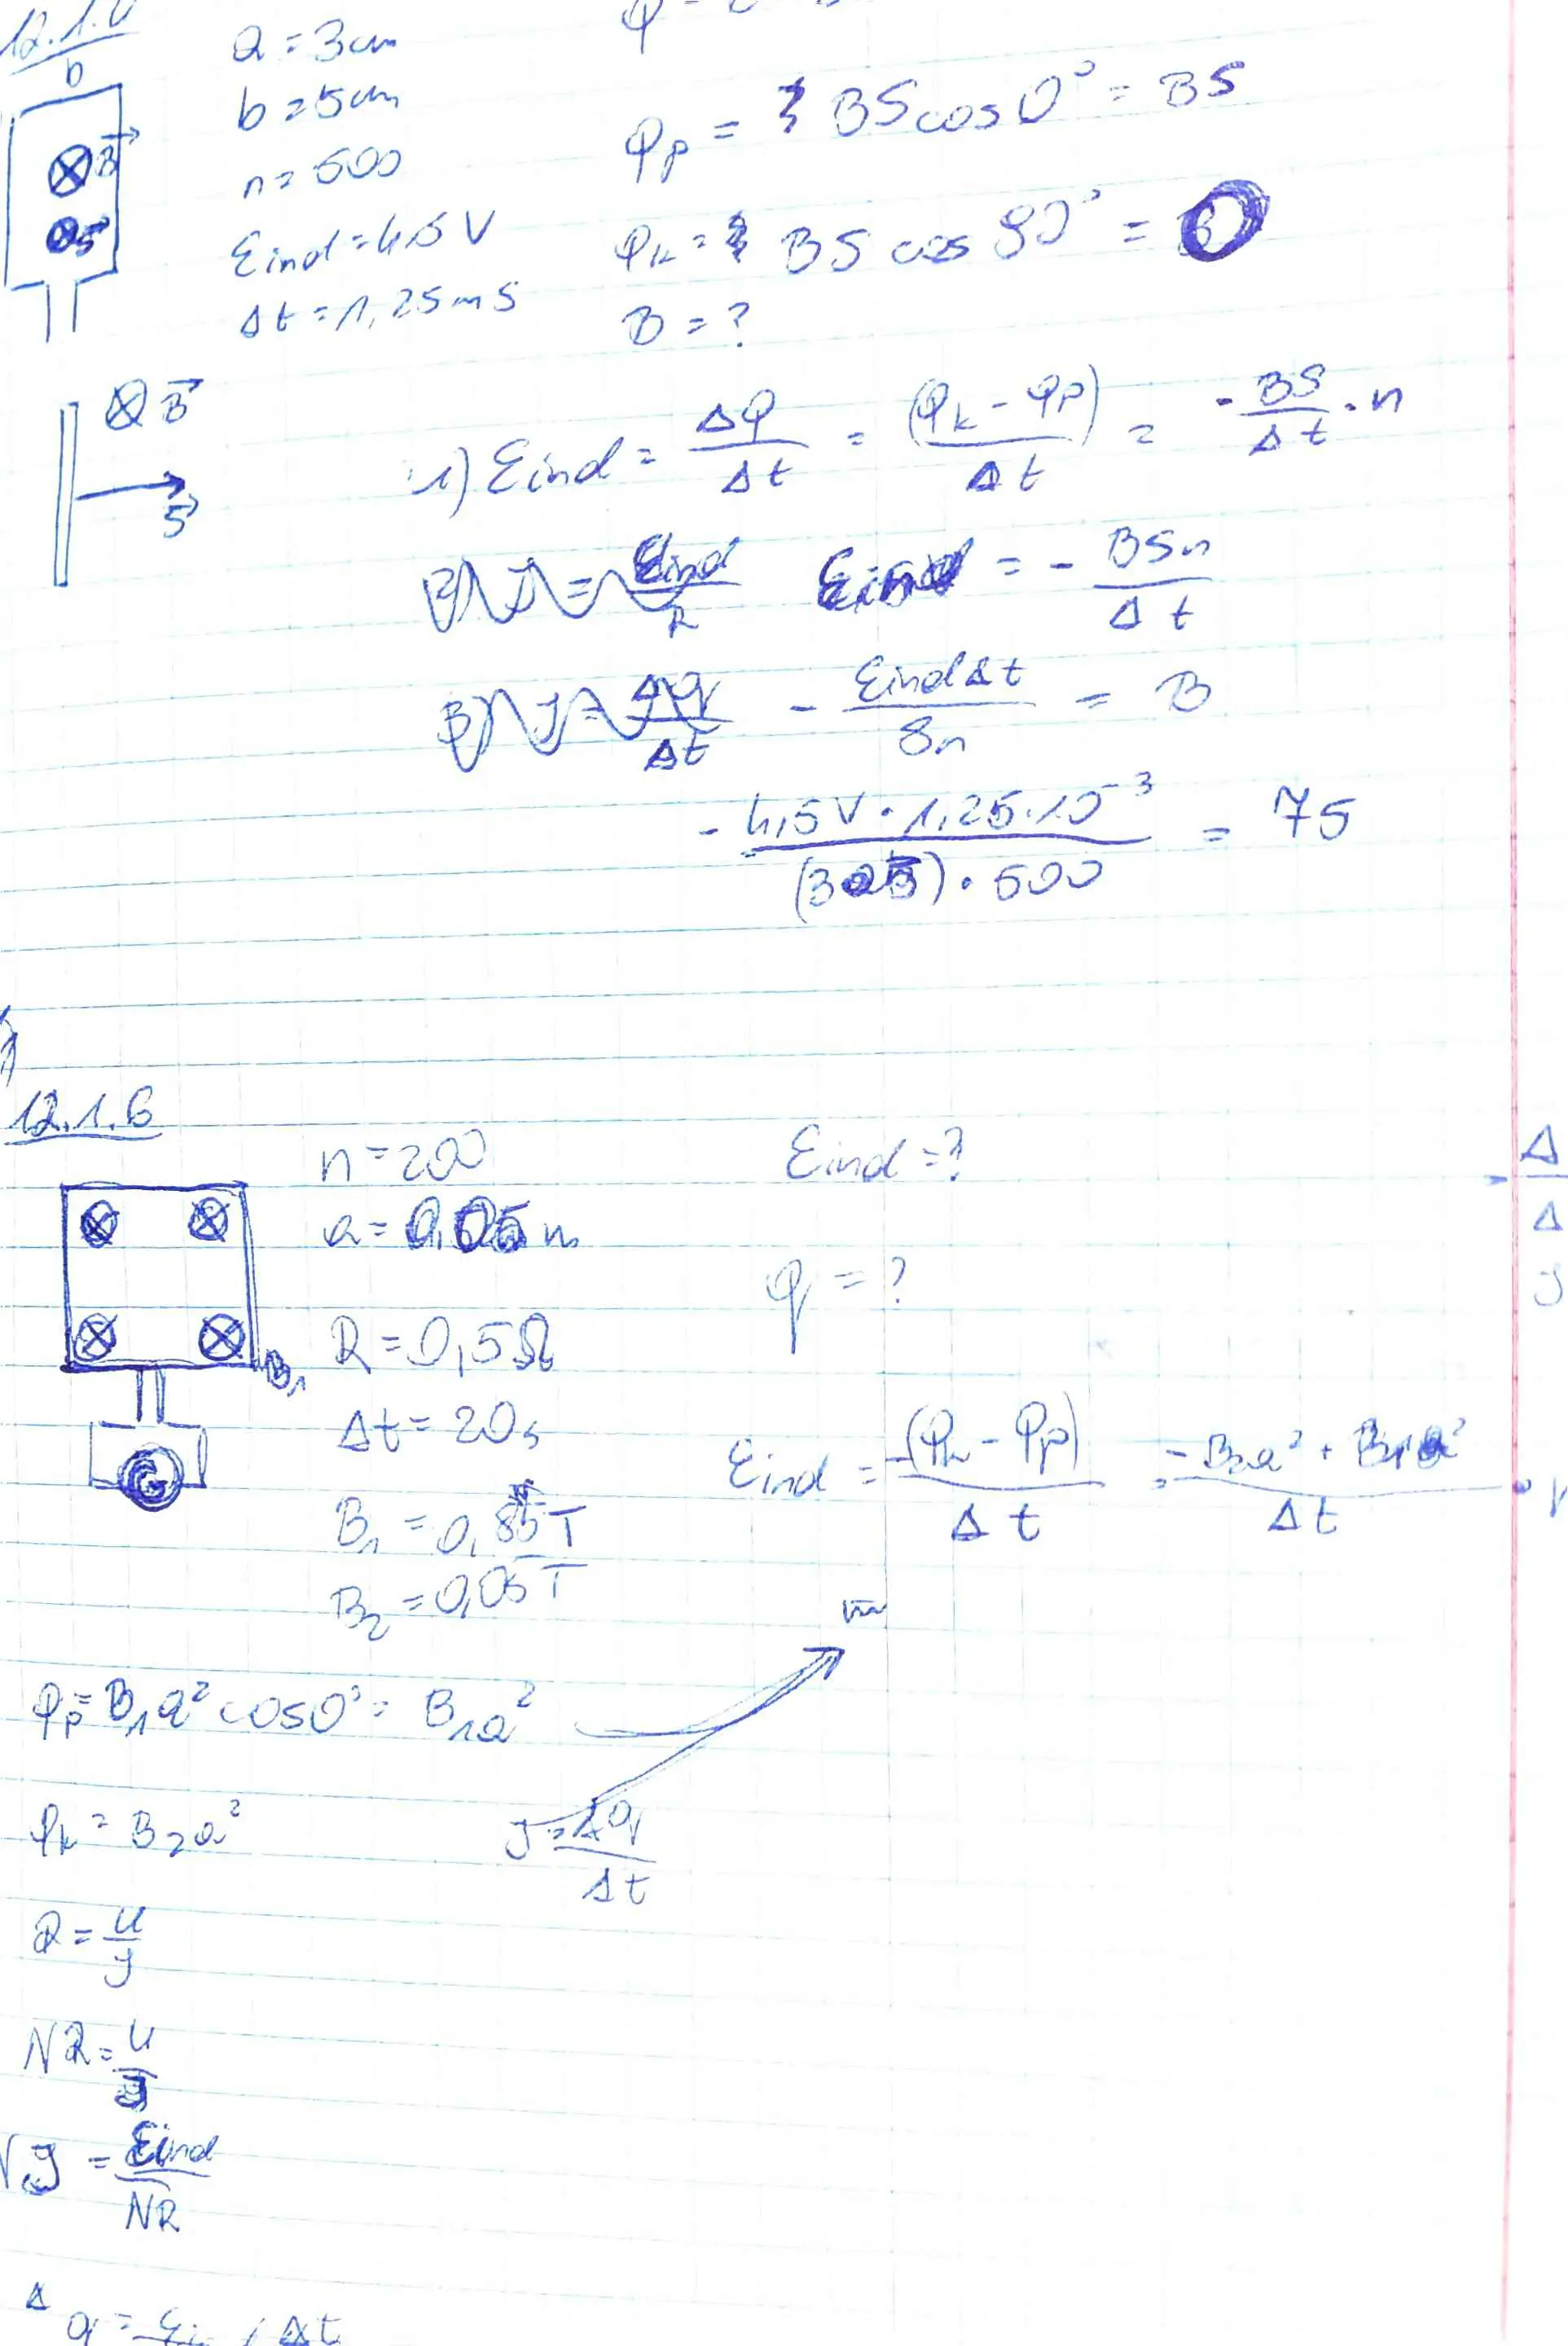 b
a = 3cm
b = 5cm
n = 500
Eind = 4,5 V
Δt = 1,25ms
B
S
φp = BS cos 0° = BS
φk = BS cos 90° = 0
B = ?
B
S
1) Eind = Δφ/Δt = (φk - φp)/Δt = - BS/Δt · n
Eind = - BSn/Δt
- EindΔt/Sn = B
- 4,5V · 1,25·10^-3 / (3·5) · 500 = 75
12.1.6
n = 200
a = 0,05 m
R = 0,5Ω
Δt = 20s
B1 = 0,85 T
B2 = 0,05 T
B1
G
Eind = ?
q = ?
Eind = -(φk - φp)/Δt = -B2a² + B1a²/Δt ·
φp = B1a² cos 0° = B1a²
φk = B2a²
J = Δq/Δt
R = U/J
NR = U/J
J = Eind/NR